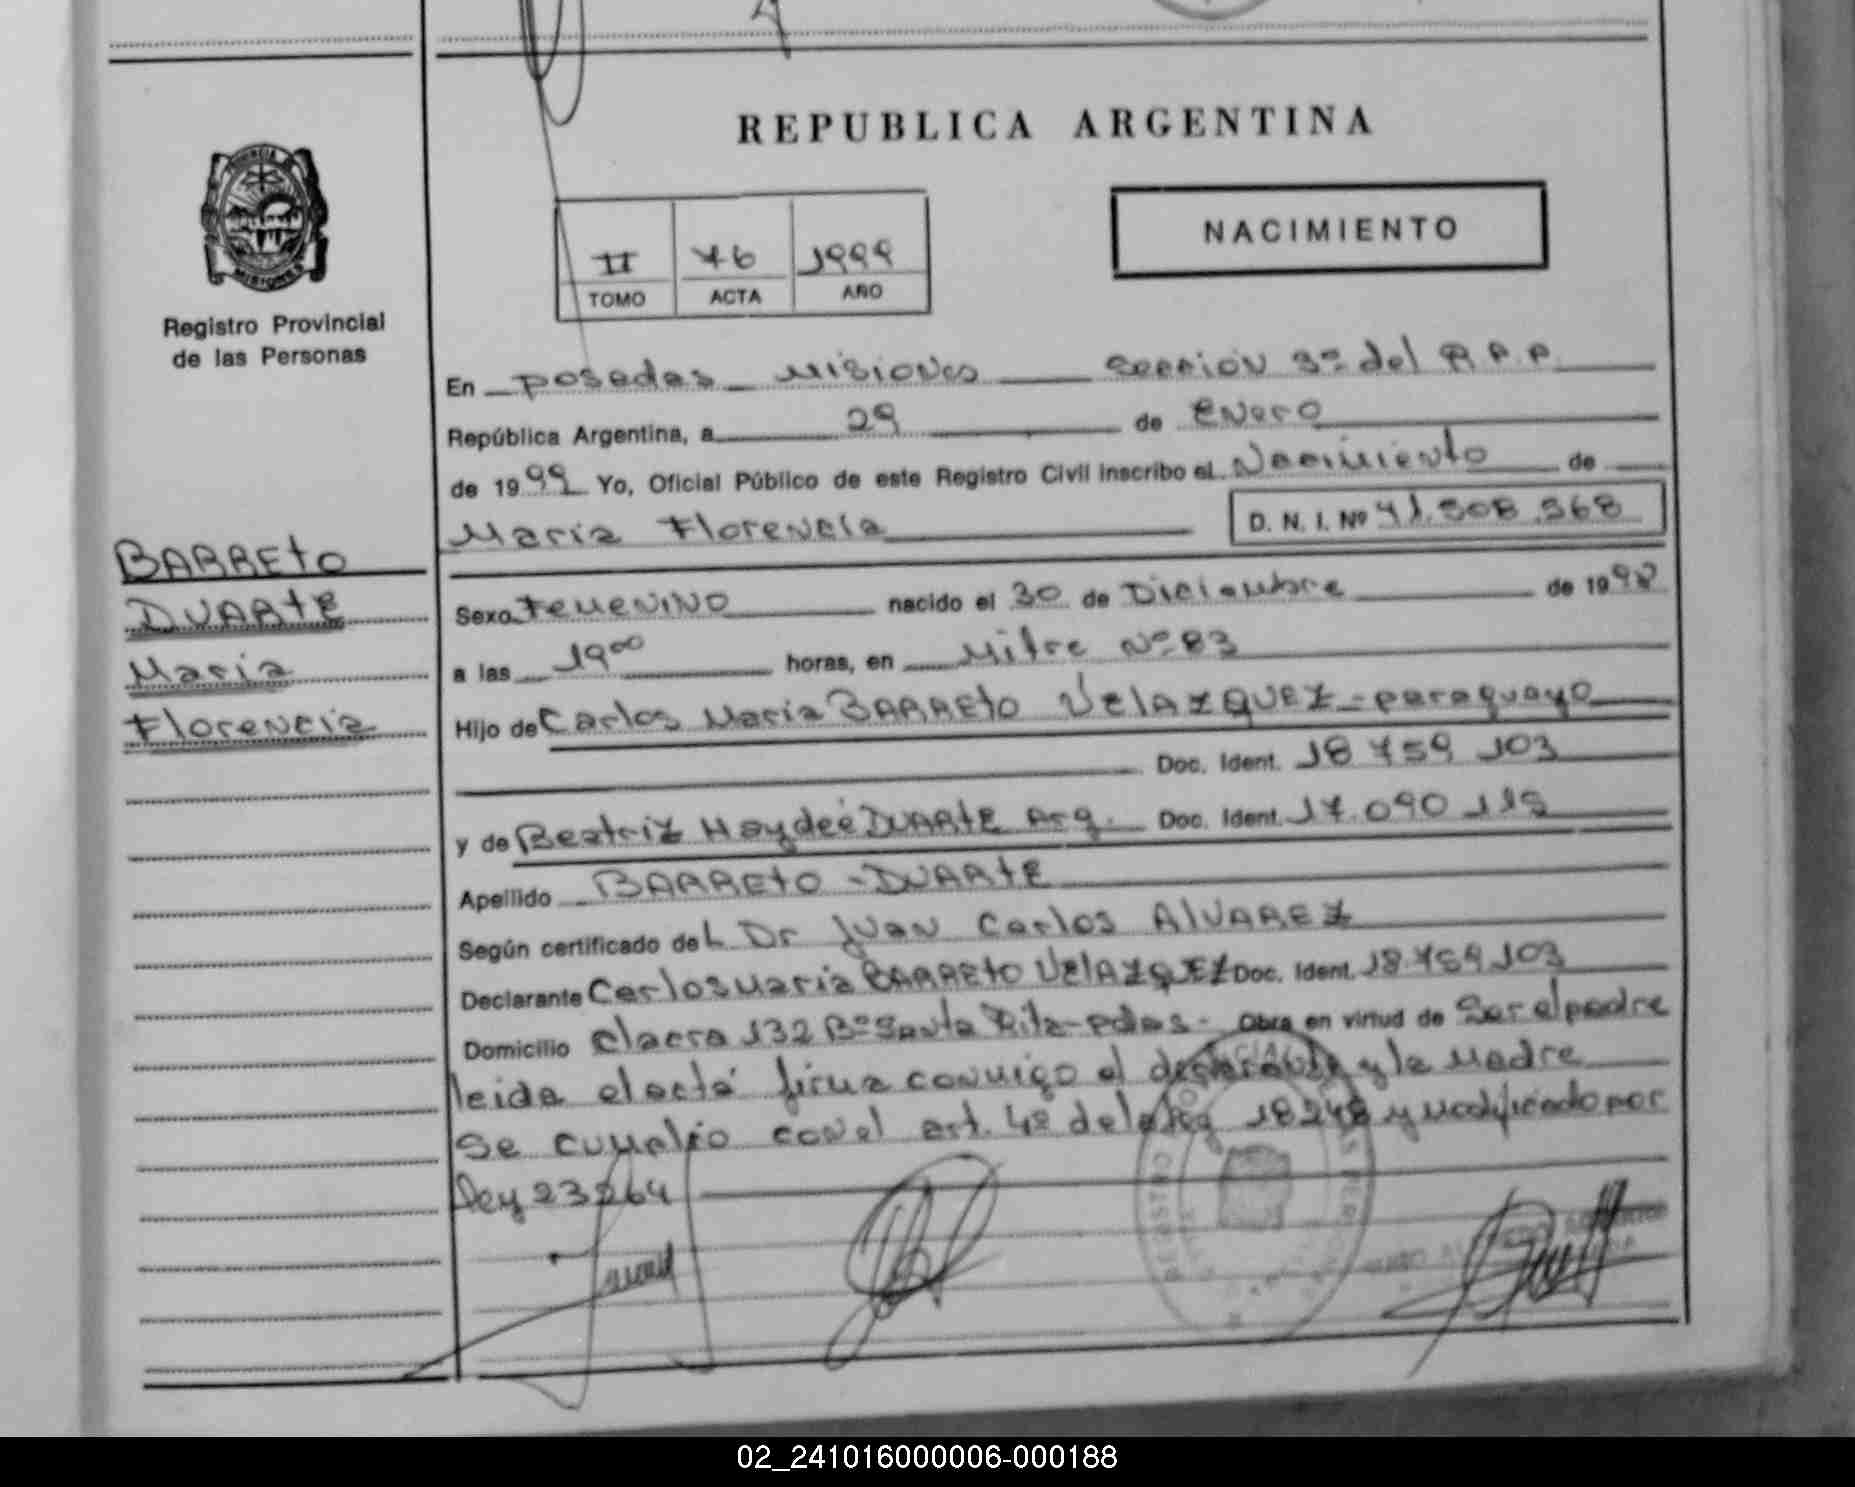 REPUBLICA ARGENTINA
PROVINCIA DE
MISIONES
Registro Provincial
de las Personas
NACIMIENTO
II 76 1999
TOMO ACTA AÑO
En posadas Misiones Sección 3ª del R.P.P.
República Argentina, a 29 de Enero
de 1999 Yo, Oficial Público de este Registro Civil inscribo el Nacimiento de
María Florencia D. N. I. Nº 41.508.568
BARRETO
DUARTE
María
Florencia
Sexo Femenino nacido el 30 de Diciembre de 1998
a las 19⁰⁰ horas, en Mitre Nº 83
Hijo de Carlos María BARRETO VELAZQUEZ - paraguayo
Doc. Ident. 18 759 103
y de Beatriz Haydeé DUARTE Arg. Doc. Ident. 17.090 115
Apellido BARRETO - DUARTE
Según certificado del Dr Juan Carlos ALVAREZ
Declarante Carlos María BARRETO VELAZQUEZ Doc. Ident. 18.759 103
Domicilio Chacra 132 Bº Santa Rita - pdas - Obra en virtud de Ser el padre
leida el acta firma conmigo el declarante y la Madre
Se cumplio con el art. 4º de la ley 18248 y modificado por
Ley 23264
02_241016000006-000188